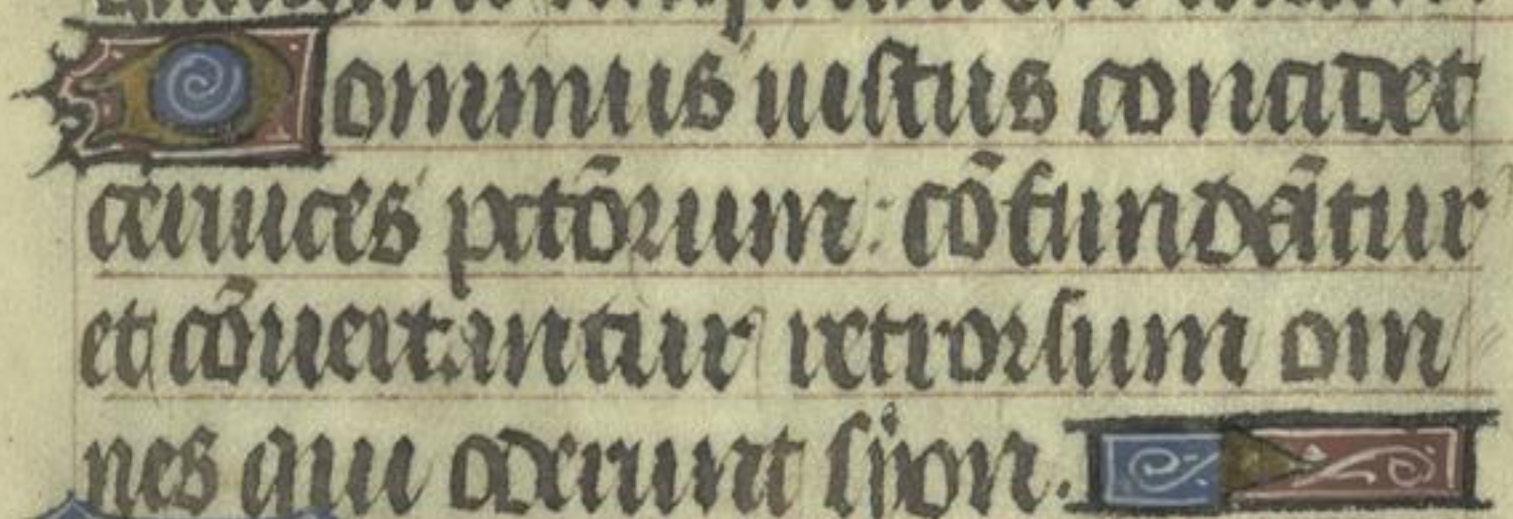 Dominus iuſtus concidet
ceruices pctōrum : cōfundātur
et cōuertantur retrorſum om
nes qui oderunt ſyon.